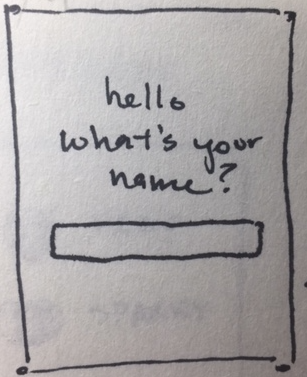 hello
what's your
name?